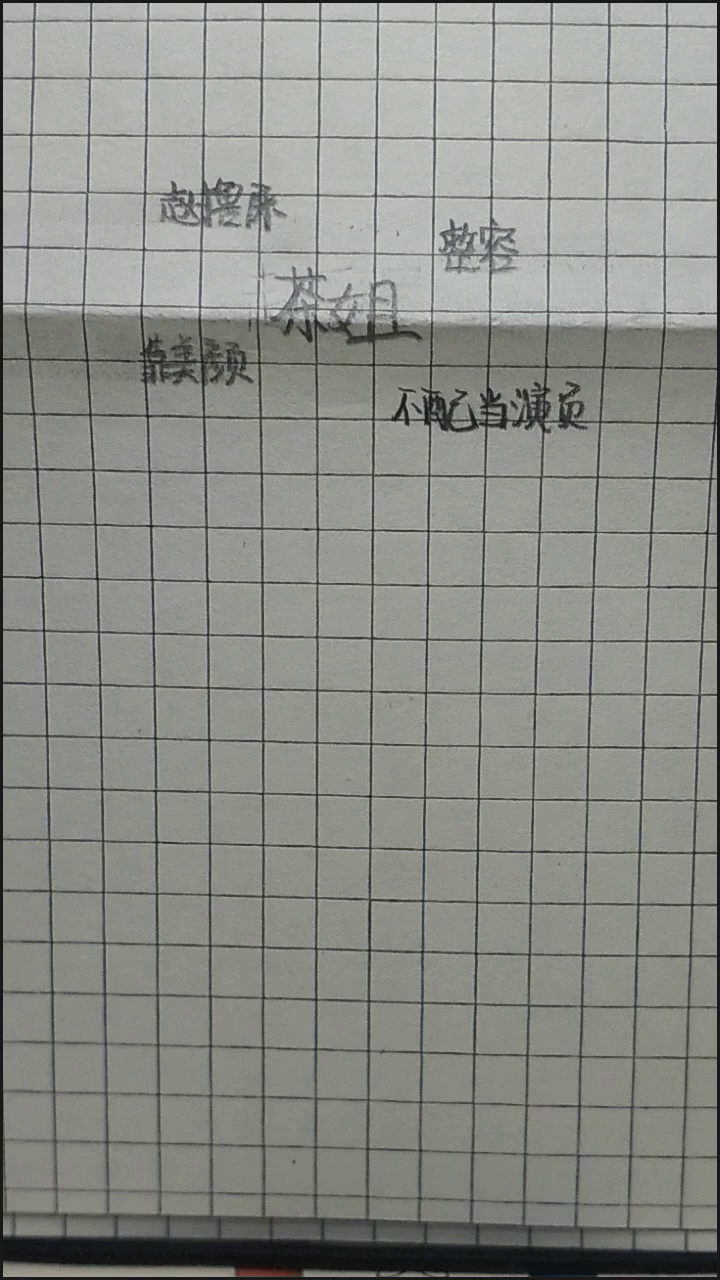 整容
茶姐
靠美颜
不配己当演员